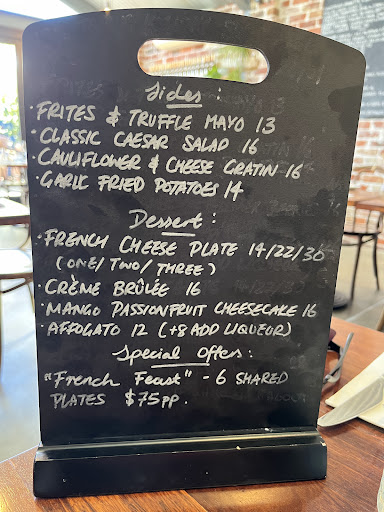 Sides :
· FRITES & TRUFFLE MAYO 13
· CLASSIC CAESAR SALAD 16
· CAULIFLOWER & CHEESE GRATIN 16
· GARLIC FRIED POTATOES 14
Dessert :
· FRENCH CHEESE PLATE 14/22/30
(ONE/ TWO/ THREE)
· CRÈME BRÛLÉE 16
· MANGO PASSIONFRUIT CHEESECAKE 16
· AFFOGATO 12 (+8 ADD LIQUEUR)
Special Offers :
"French Feast" - 6 SHARED
PLATES $75pp.